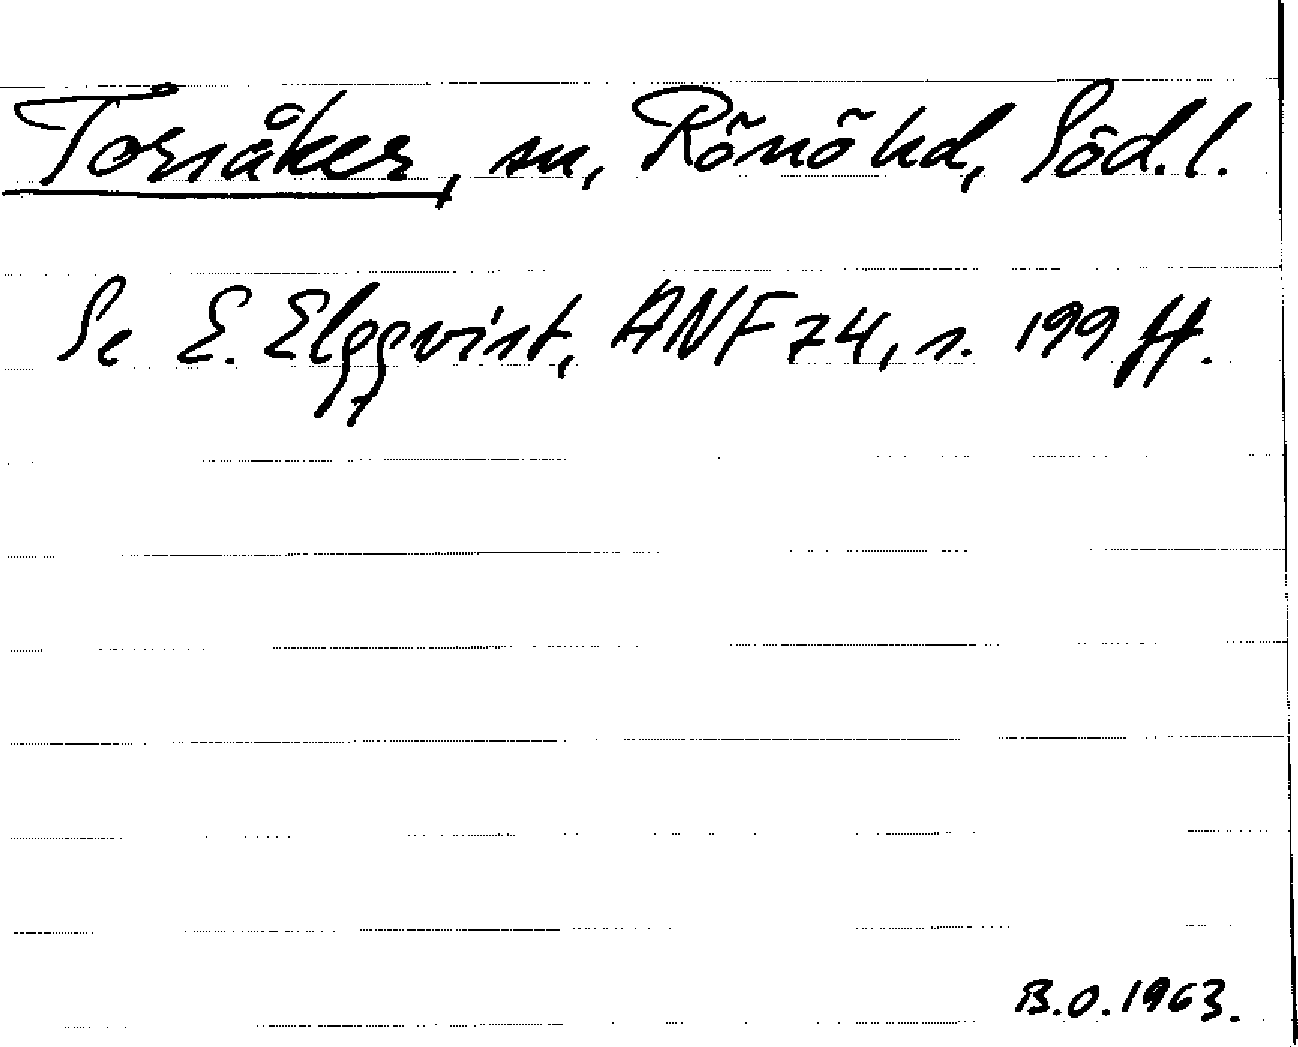 Torsåker, sn, Rönö hd, Söd.l.
Se E. Elgqvist, ANF 74, s. 199 ff.
B.O. 1963.